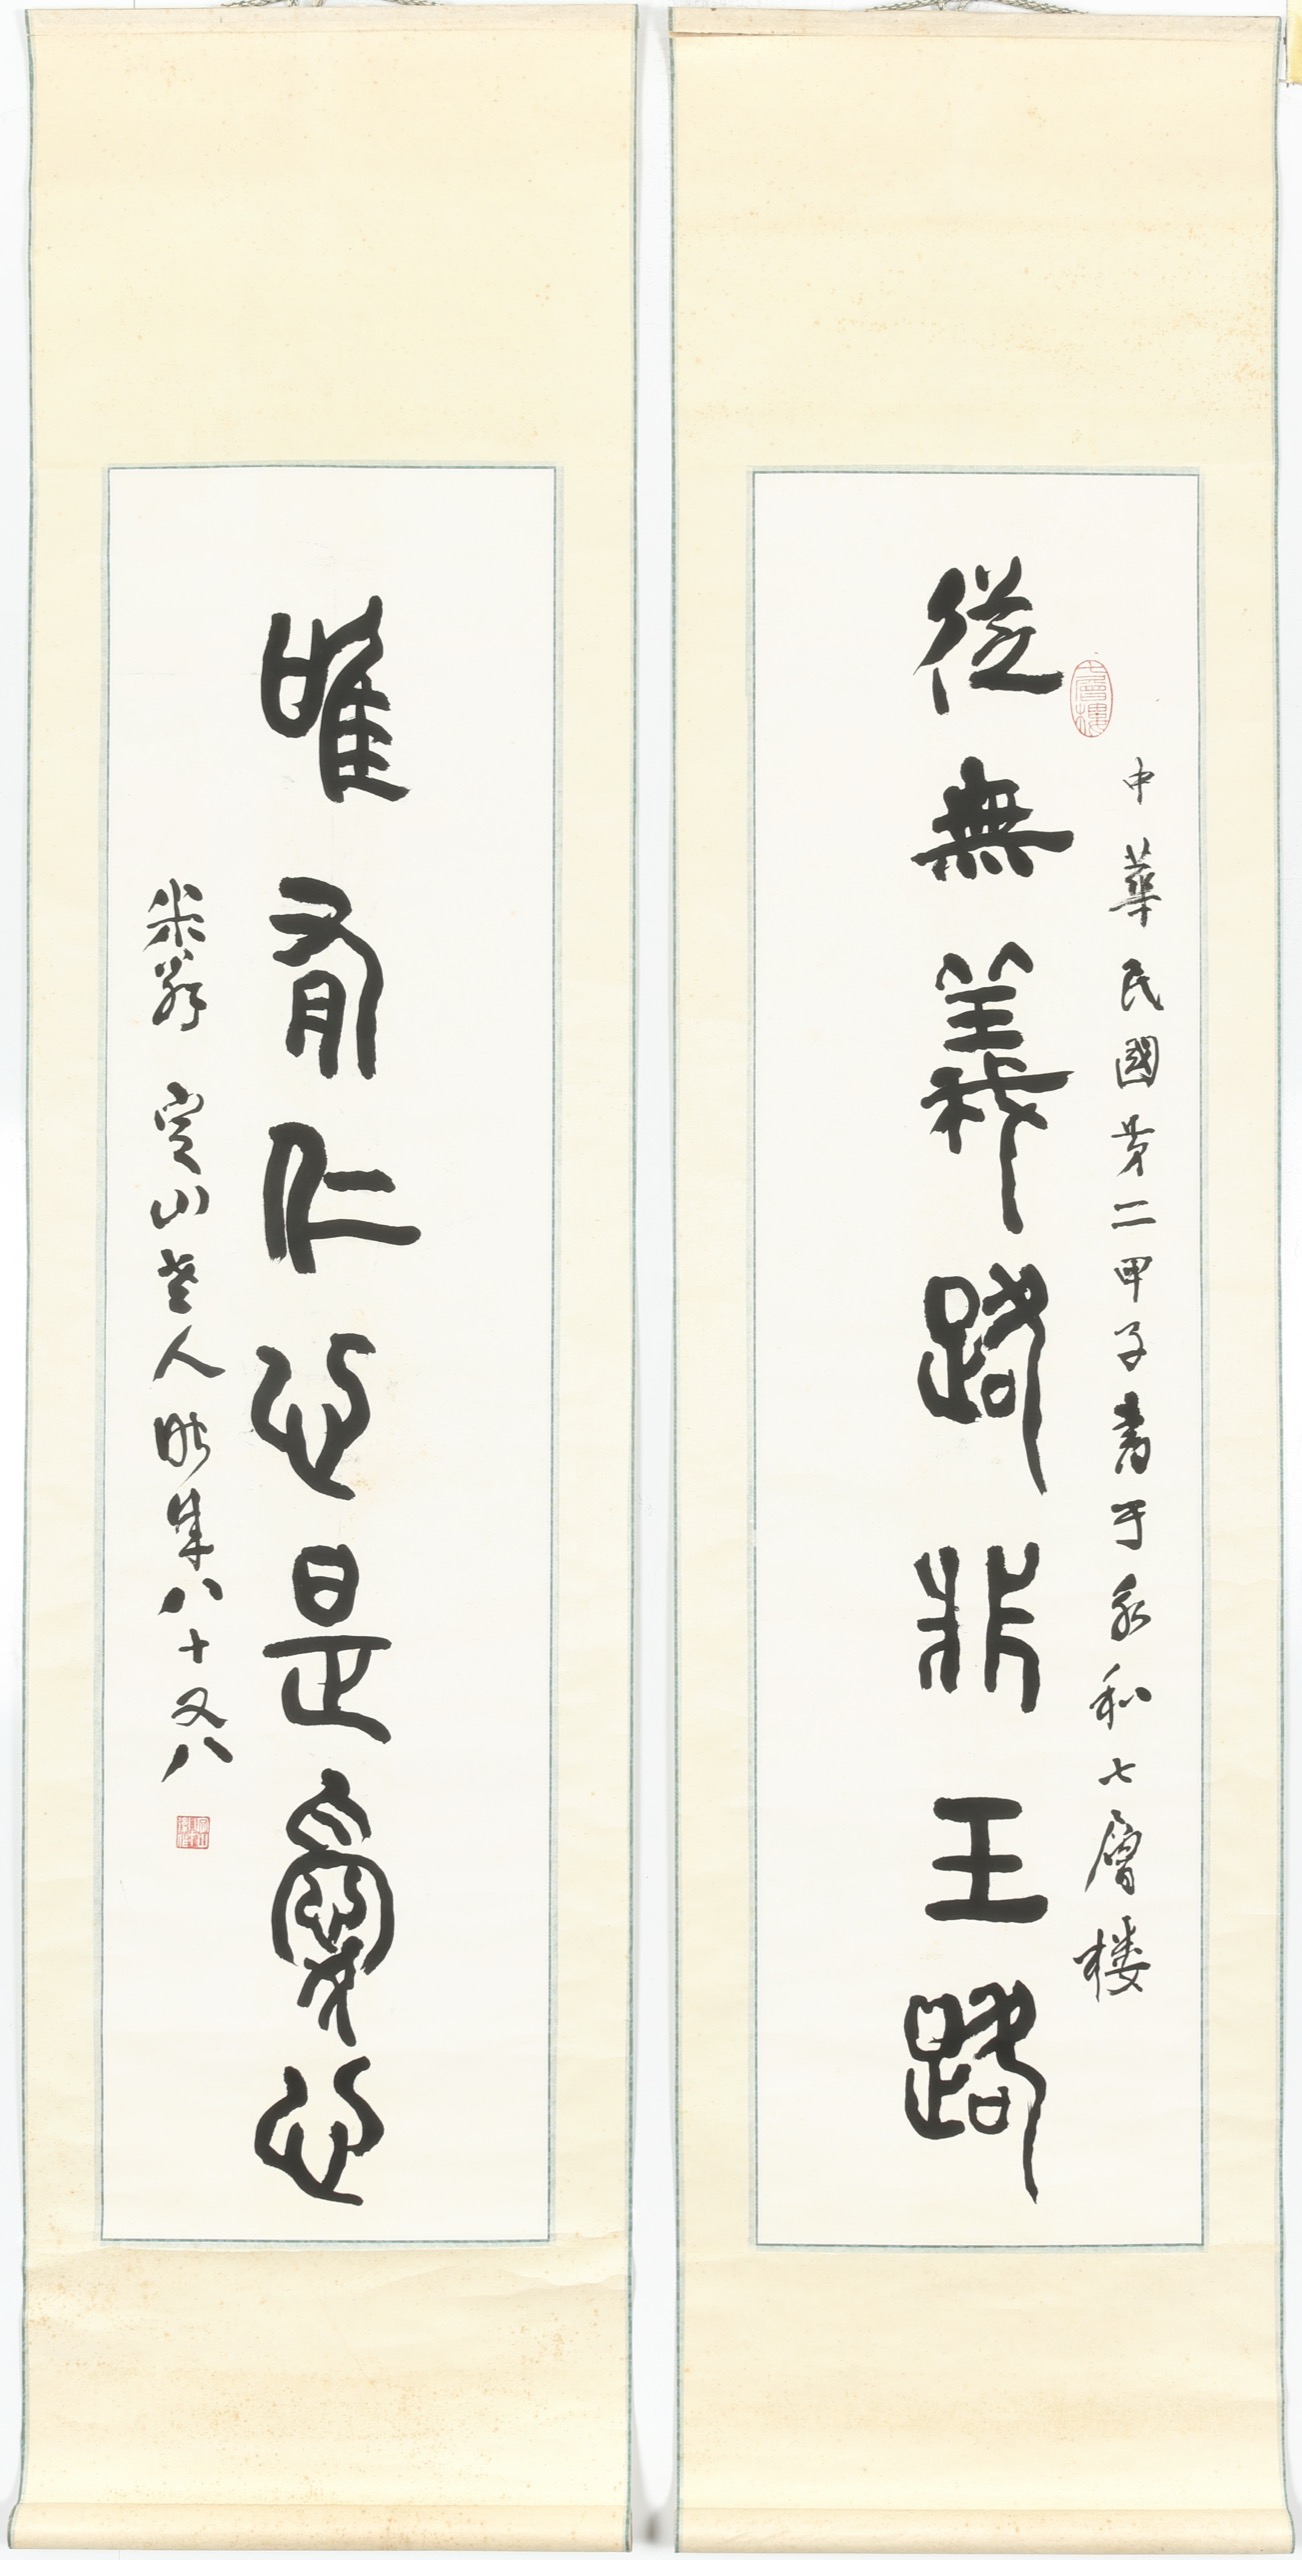 從無義路非王路
中華民國第二甲子書于永和七層楼
七層樓
唯有仁心是愛心
米翁 定山老人時年八十又八